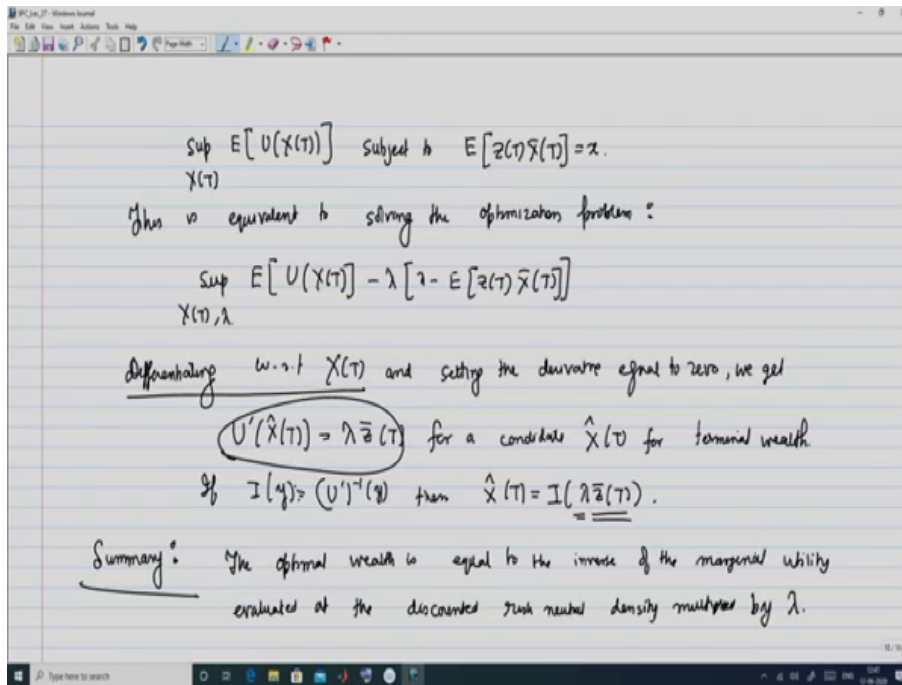 IPC_Lec_27 - Windows Journal
File Edit View Insert Actions Tools Help
Page Width
Sup E[U(X(T))] subject to E[Z(T) X̄(T)] = x.
X(T)
This is equivalent to solving the optimization problem :
Sup E[U(X(T)] - λ[x - E[Z(T) X̄(T)]]
X(T), λ
Differentiating w.r.t X(T) and setting the derivative equal to zero, we get
U'(X̂(T)) = λ z̄(T) for a candidate X̂(T) for terminal wealth.
If I(y) = (U')⁻¹(y) then X̂(T) = I(λ z̄(T)).
Summary : The optimal wealth is equal to the inverse of the marginal utility
evaluated at the discounted risk neutral density multiplied by λ.
Type here to search
ENG